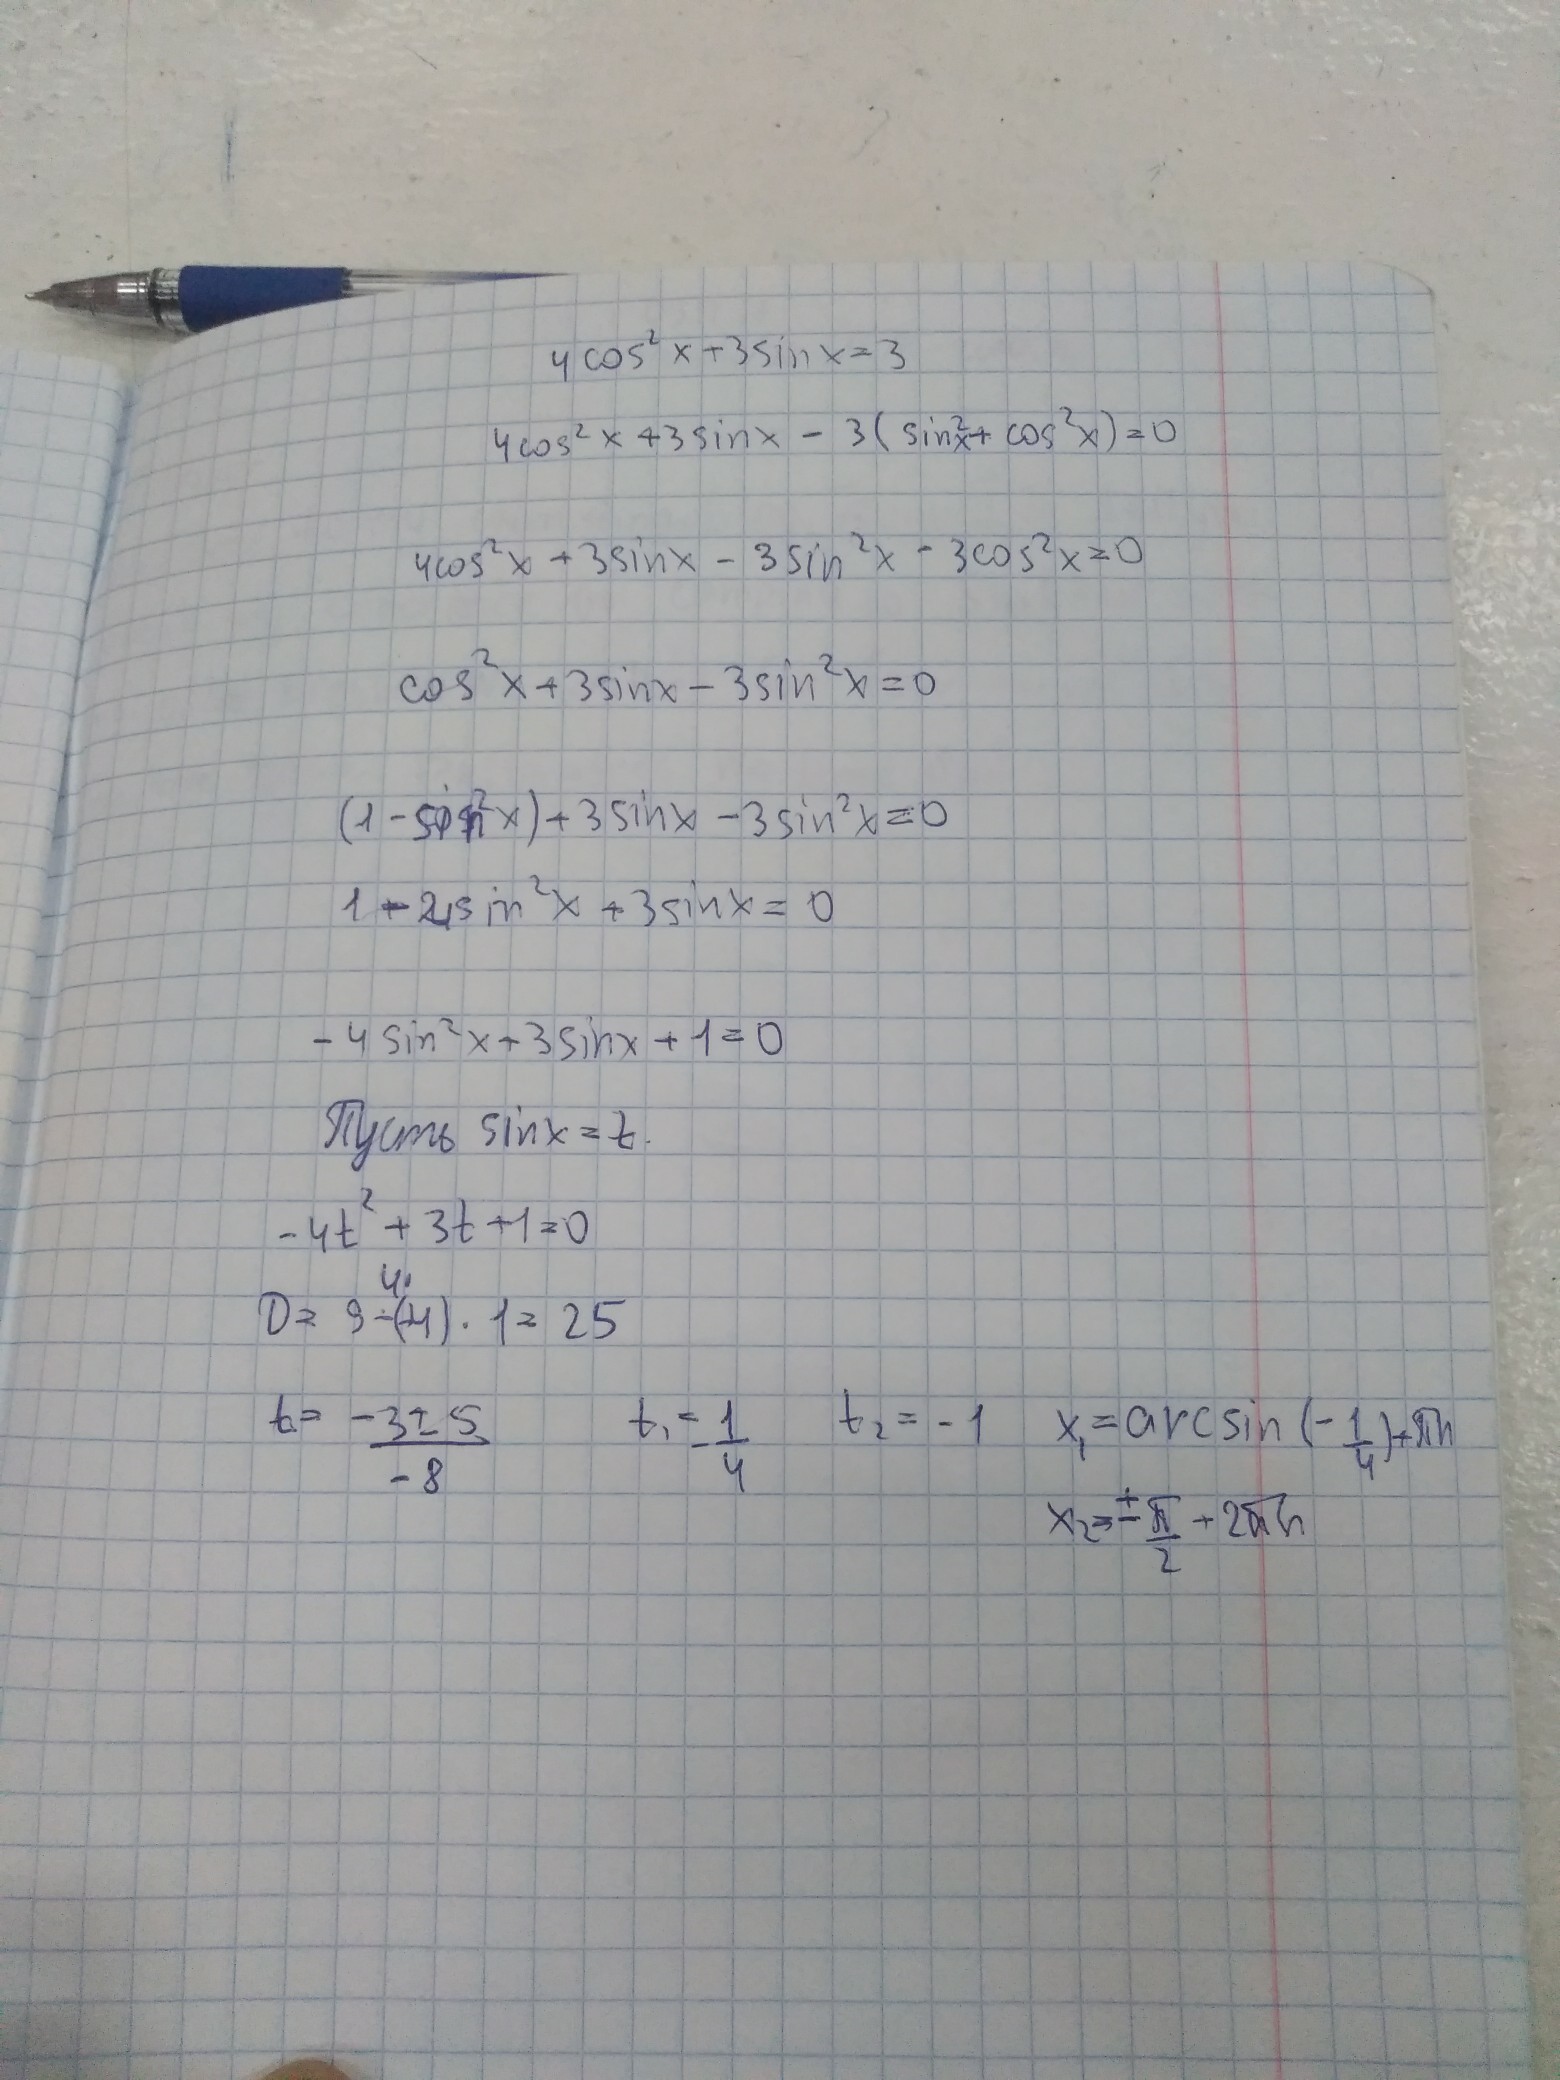 4cos²x+3sinx=3
4cos²x+3sinx-3(sin²x+cos²x)=0
4cos²x+3sinx-3sin²x-3cos²x=0
cos²x+3sinx-3sin²x=0
(1-sin²x)+3sinx-3sin²x=0
1-4sin²x+3sinx=0
-4sin²x+3sinx+1=0
Пусть sinx=t.
-4t²+3t+1=0
D=9-4·(-4)·1=25
t=\frac{-3±5}{-8} t₁=-\frac{1}{4} t₂=-1 x₁=arcsin(-\frac{1}{4})+πn
x₂=±\frac{π}{2}+2πn